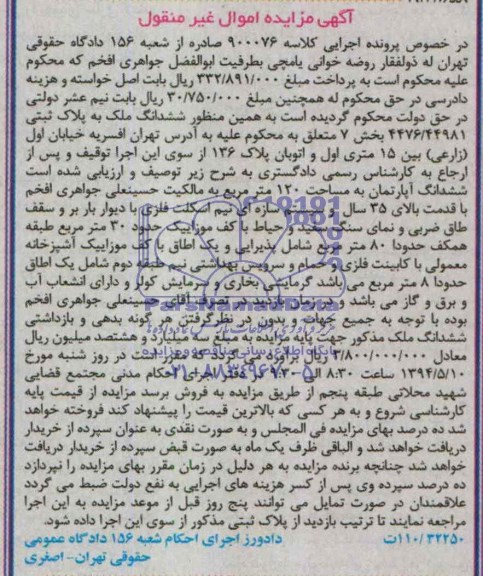 آگهی مزایده اموال غیر منقول
در خصوص پرونده اجرایی کلاسه ۹۰۰۰۷۶ صادره از شعبه ۱۵۶ دادگاه حقوقی
تهران له ذولفقار روضه خوانی یامچی بطرفیت ابوالفضل جواهری افخم که محکوم
علیه محکوم است به پرداخت مبلغ ۳۳۲/۸۹۱/۰۰۰ ریال بابت اصل خواسته و هزینه
دادرسی در حق محکوم له همچنین مبلغ ۳۰/۷۵۰/۰۰۰ ریال بابت نیم عشر دولتی
در حق دولت محکوم گردیده است به همین منظور ششدانگ ملک به پلاک ثبتی
۴۴۷۶/۴۴۹۸۱ بخش ۷ متعلق به محکوم علیه به آدرس تهران افسریه خیابان اول
(زارعی) بین ۱۵ متری اول و اتوبان پلاک ۱۳۶ از سوی این اجرا توقیف و پس از
ارجاع به کارشناس رسمی دادگستری به شرح زیر توصیف و ارزیابی شده است
ششدانگ آپارتمان به مساحت ۱۲۰ متر مربع به مالکیت حسینعلی جواهری افخم
با قدمت بالای ۳۵ سال و سیستم سازه ای نیم اسکلت فلزی با دیوار بار بر و سقف
طاق ضربی و نمای سنگ سفید و حیاط با کف موزاییک حدود ۳۰ متر مربع طبقه
همکف حدودا ۸۰ متر مربع شامل پذیرایی و یک اطاق با کف موزاییک آشپزخانه
معمولی با کابینت فلزی و حمام و سرویس بهداشتی نیم طبقه دوم شامل یک اطاق
حدودا ۸ متر مربع می باشد گرمایشی بخاری و سرمایش کولر و دارای انشعاب آب
و برق و گاز می باشد و در زمان بازدید در تصرف آقای حسینعلی جواهری افخم
بوده با توجه به جمیع جهات و بدون در نظرگرفتن هر گونه بدهی و بازداشتی
ششدانگ ملک مذکور جهت پایه مزایده به مبلغ سه میلیارد و هشتصد میلیون ریال
معادل ۳/۸۰۰/۰۰۰/۰۰۰ ریال برآورد می گردد و مقرر است در روز شنبه مورخ
۱۳۹۴/۵/۱۰ ساعت ۸:۳۰ الی ۹:۳۰ در دفتر اجرای احکام مدنی مجتمع قضایی
شهید محلاتی طبقه پنجم از طریق مزایده به فروش برسد مزایده از قیمت پایه
کارشناسی شروع و به هر کسی که بالاترین قیمت را پیشنهاد کند فروخته خواهد
شد ده درصد بهای مزایده فی المجلس و به صورت نقدی به عنوان سپرده از خریدار
دریافت خواهد شد و الباقی ظرف یک ماه به صورت قبض سپرده از خریدار دریافت
خواهد شد چنانچه برنده مزایده به هر دلیل در زمان مقرر بهای مزایده را نپردازد
ده درصد سپرده وی پس از کسر هزینه های اجرایی به نفع دولت ضبط می گردد
علاقمندان در صورت تمایل می توانند پنج روز قبل از موعد مزایده به این اجرا
مراجعه نمایند تا ترتیب بازدید از پلاک ثبتی مذکور از سوی این اجرا داده شود.
۱۱۰/۳۲۲۵۰ت دادورز اجرای احکام شعبه ۱۵۶ دادگاه عمومی
حقوقی تهران- اصغری